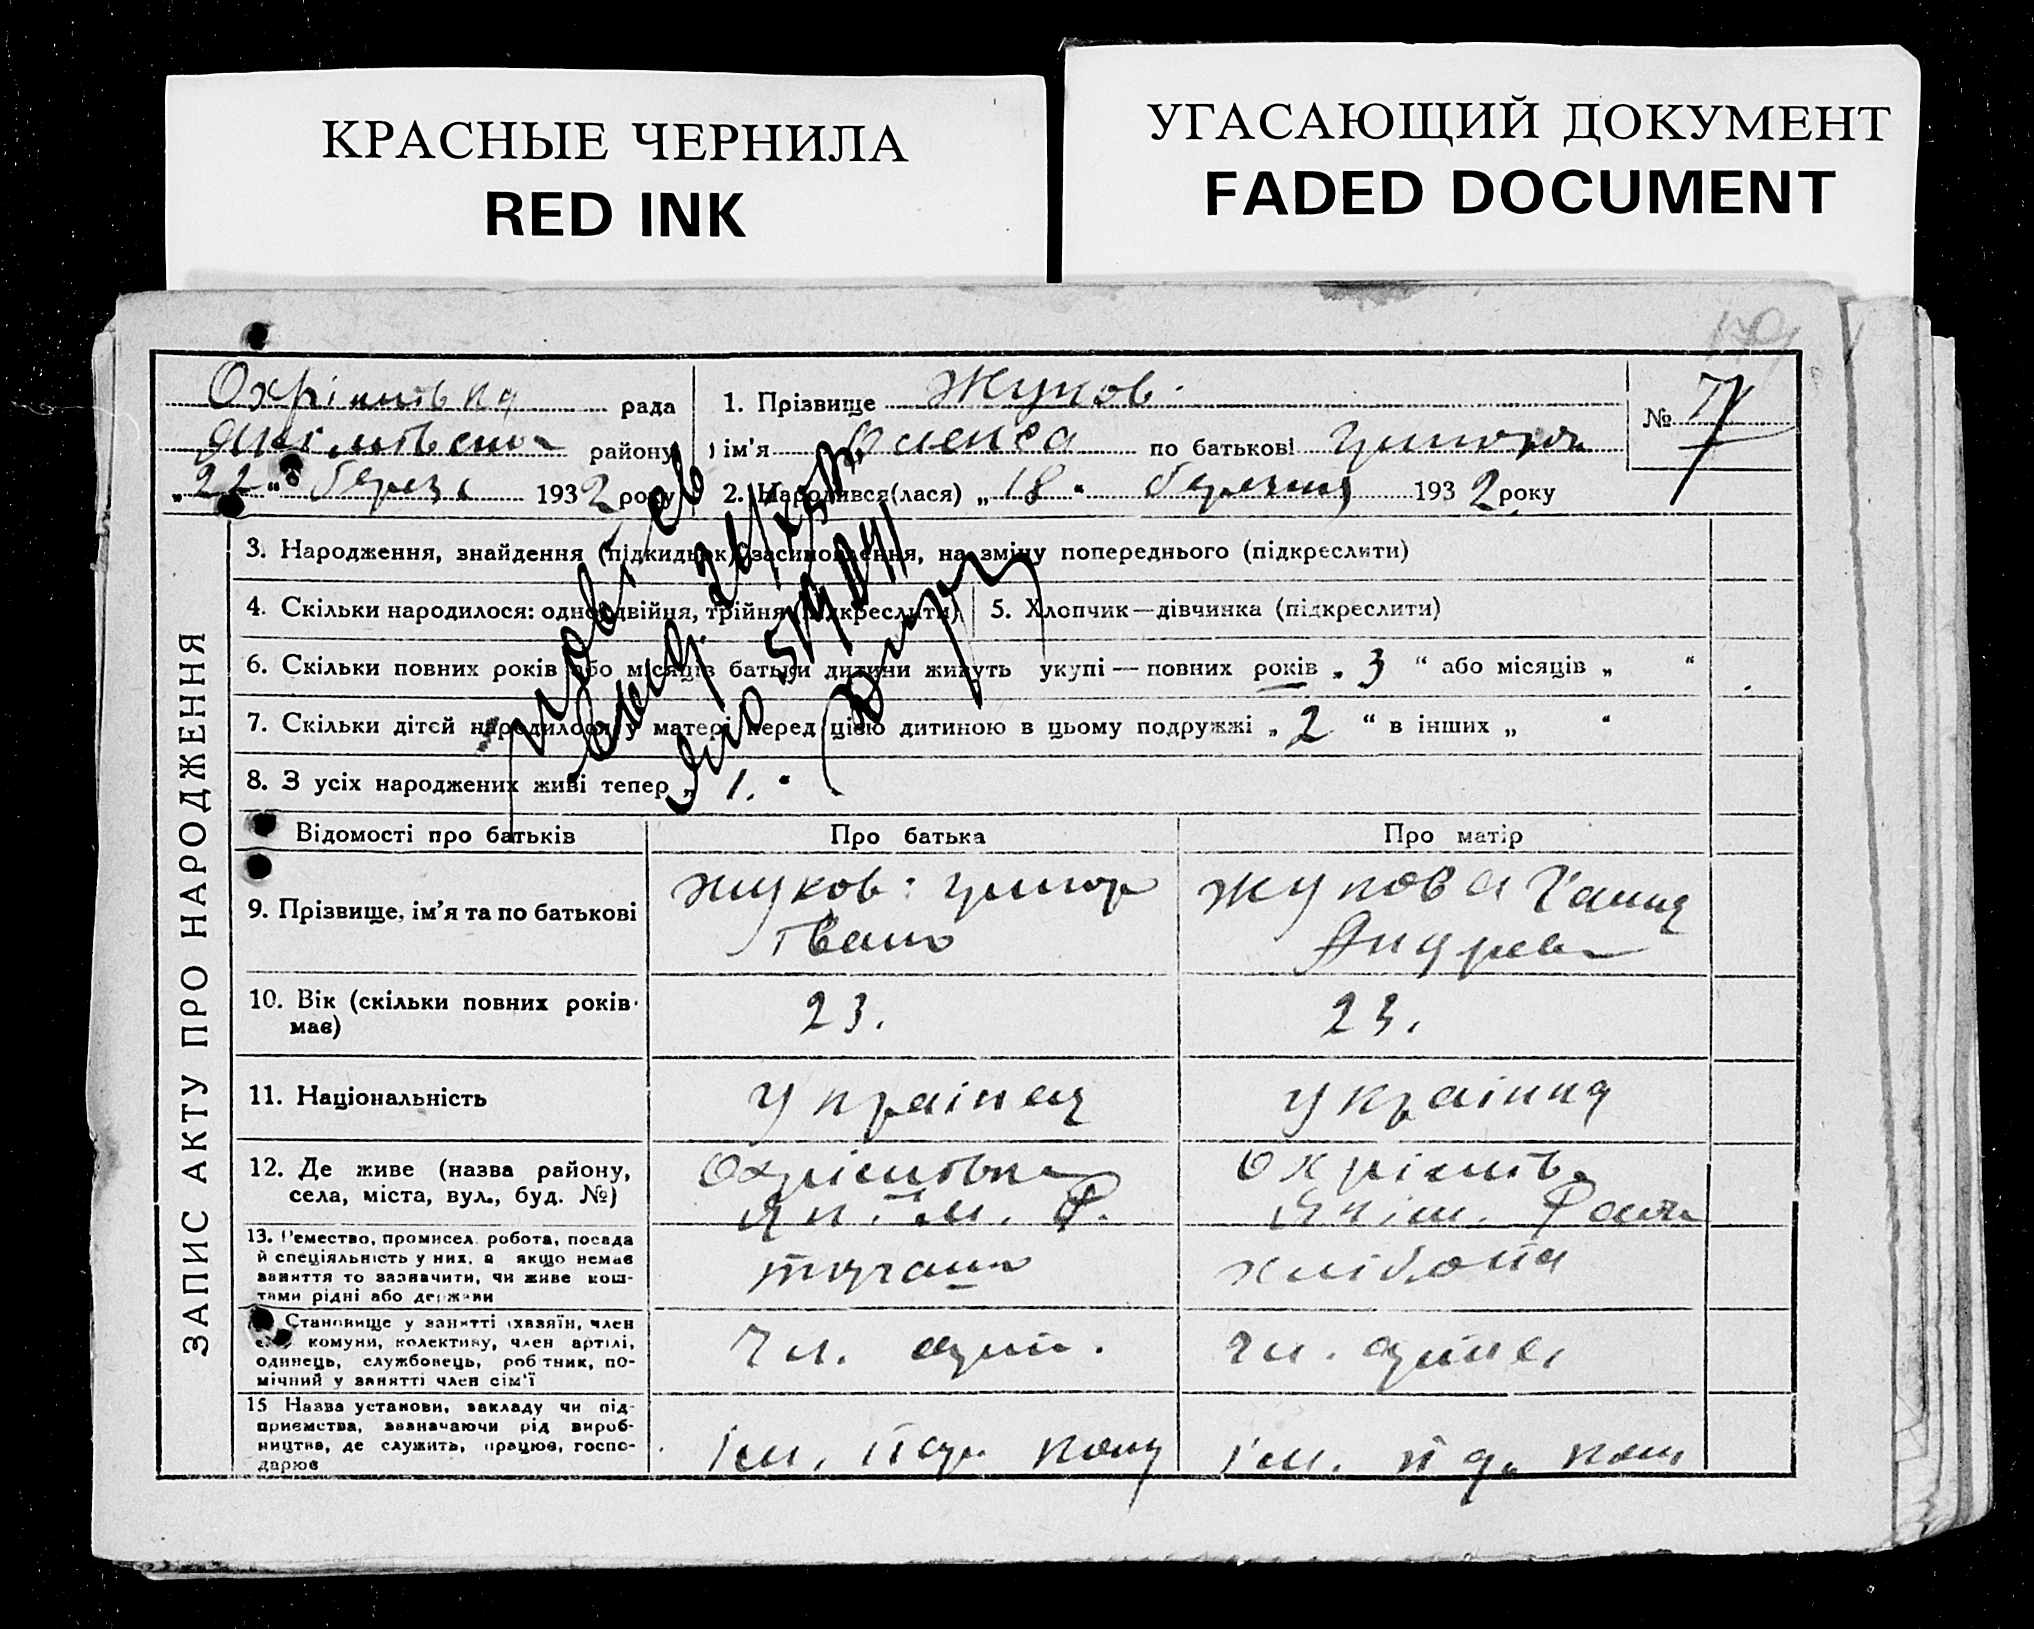 КРАСНЫЕ ЧЕРНИЛА
RED INK
УГАСАЮЩИЙ ДОКУМЕНТ
FADED DOCUMENT
179
Охрімівка рада
району
„22“ 1932 року
1. Прізвище Жуков
ім'я Олекса по батькові Григоров
2. Народився(лася) „18“ березня 1932 року
№ 71
ЗАПИС АКТУ ПРО НАРОДЖЕННЯ
3. Народження, знайдення (підкидьок), засиновлення, на зміну попереднього (підкреслити)
4. Скільки народилося: одно, двійня, трійня (підкреслити)
5. Хлопчик—дівчинка (підкреслити)
6. Скільки повних років або місяців батьки дитини живуть укупі — повних років „3“ або місяців „ “
7. Скільки дітей народилося у матері перед цією дитиною в цьому подружжі „2“ в інших „ “
8. З усіх народжених живі тепер „1.“
Відомості про батьків
Про батька
Про матір
9. Прізвище, ім'я та по батькові
Жуков Григор
Івано
Жукова Ганна
Андреев
10. Вік (скільки повних років має)
23.
23.
11. Національність
Українец
Українка
12. Де живе (назва району,
села, міста, вул., буд. №)
Охрімовка
Як. м. Р.
Охрімів
Якім. Район
13. Ремество, промисел. робота, посада
й спеціяльність у них, а якщо немає
заняття то зазначити, чи живе кош-
тами рідні або держави
хлібопа
Становище у занятті (хазяїн, член
комуни, колективу, член артілі,
одинець, службовець, робітник, по-
мічний у занятті член сім'ї
Чл. арт.
Чл. артил
15 Назва установи, закладу чи під-
приємства, зазначаючи рід вироб-
ництва, де служить, працює, госпо-
дарює
ім.
ім.